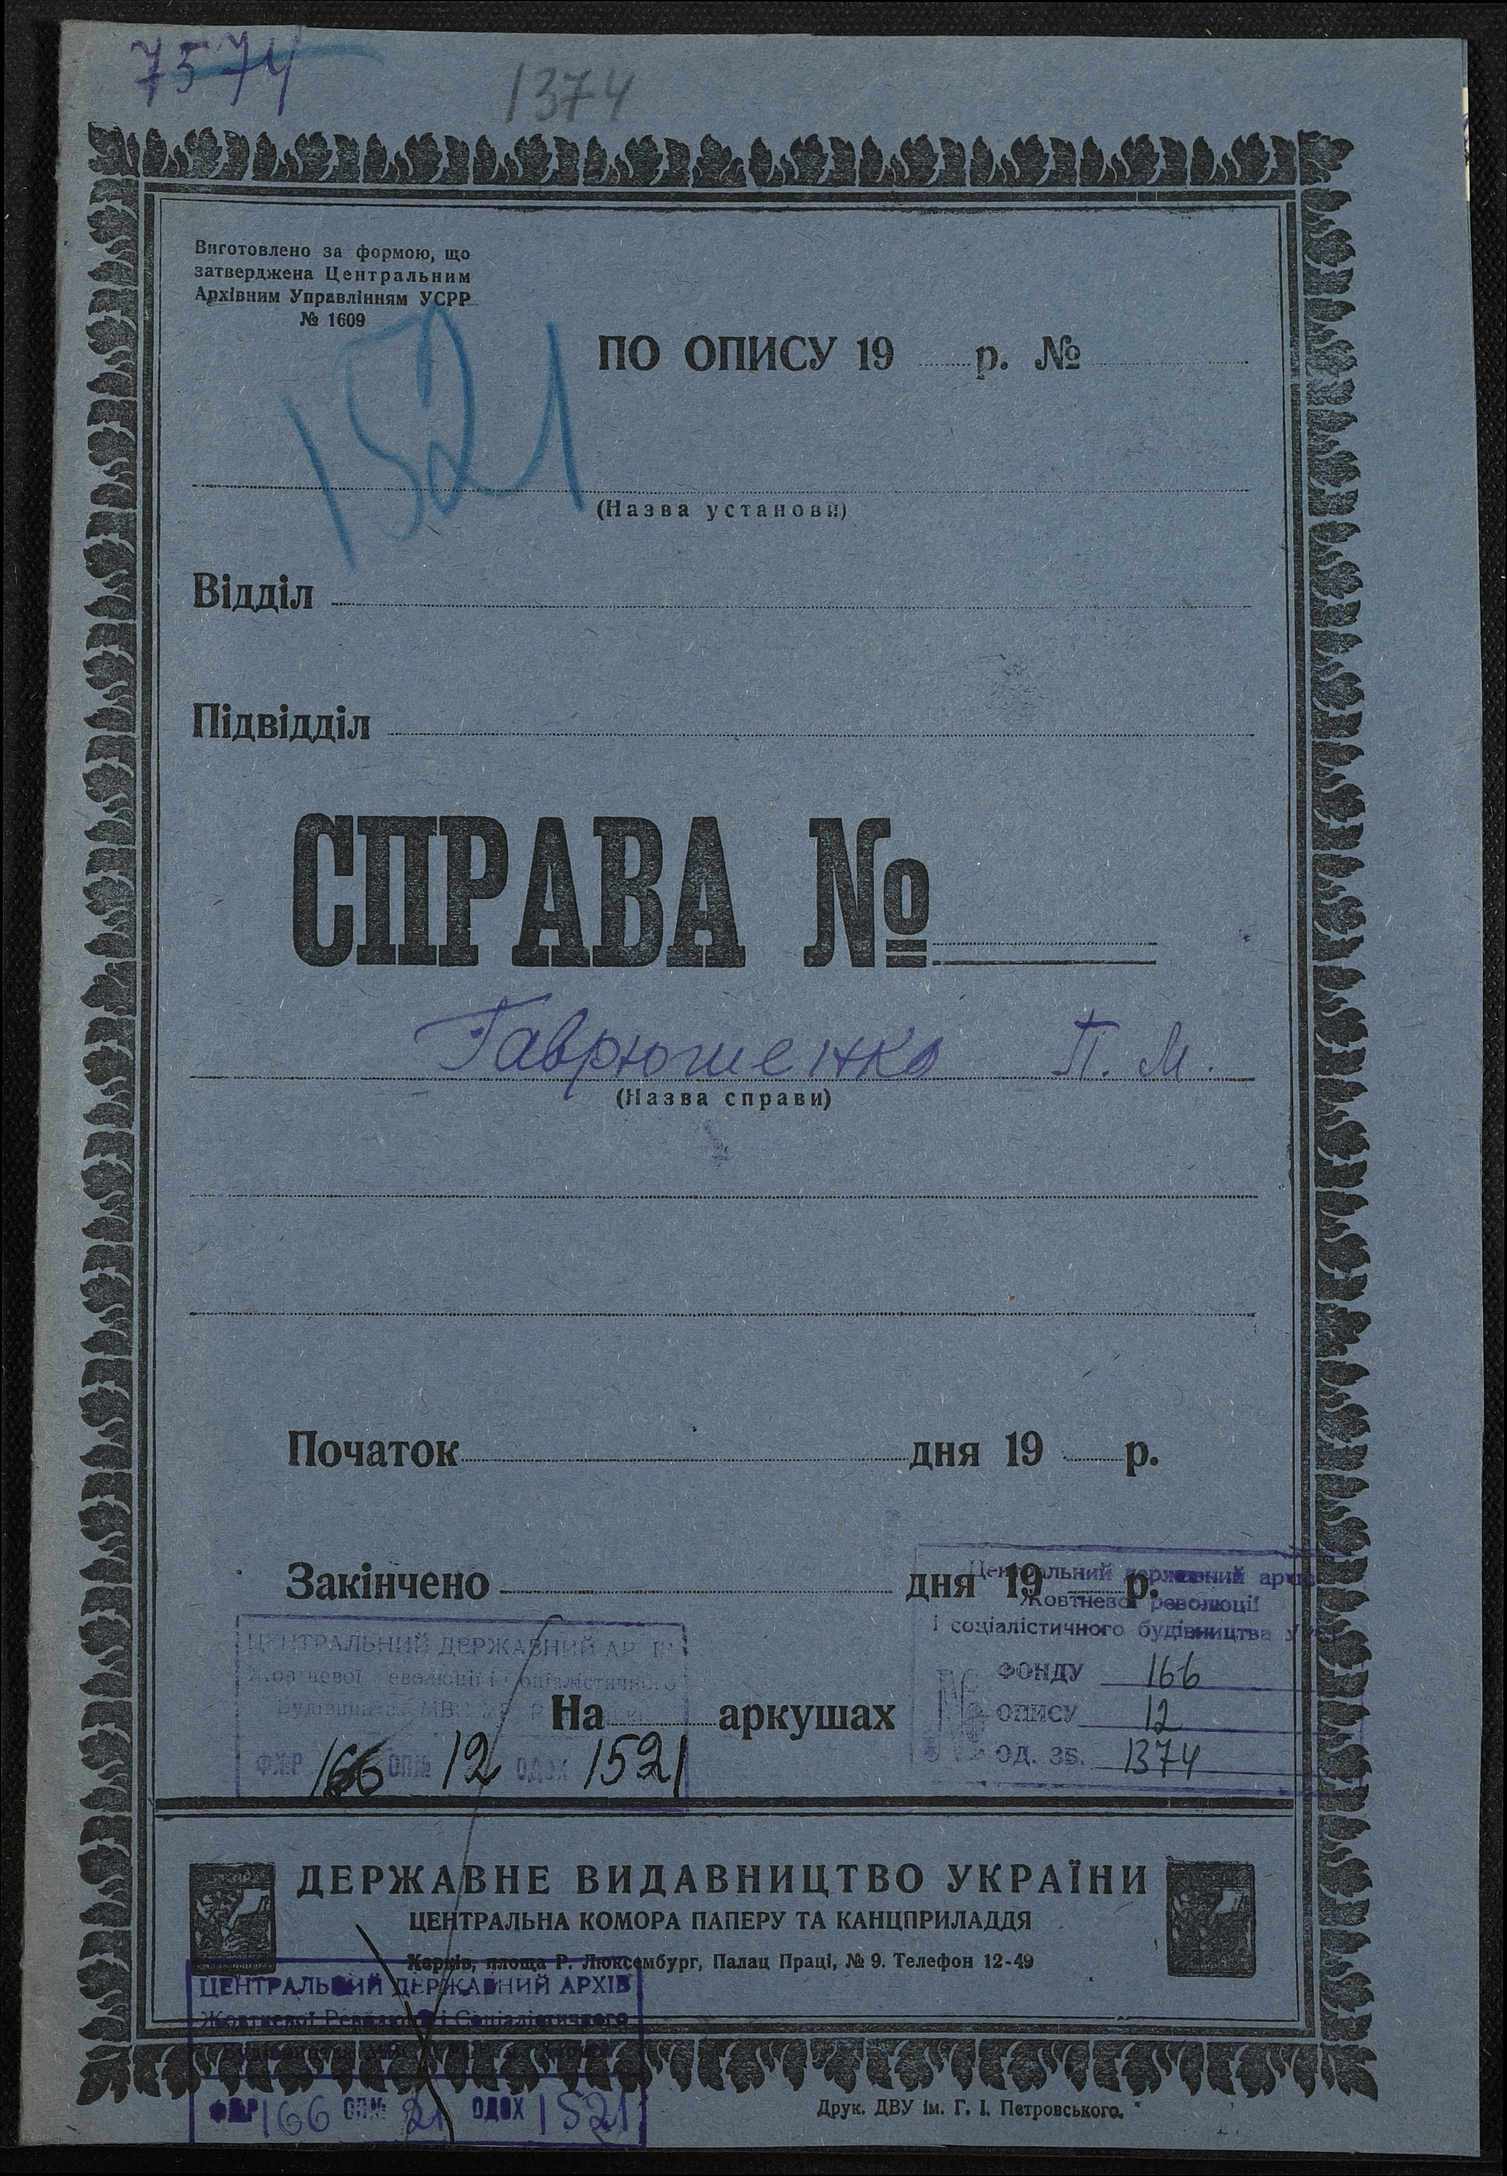 7574
1374
Виготовлено за формою, що
затверджена Центральним
Архівним Управлінням УСРР
№ 1609
1521
ПО ОПИСУ 19 р. №
(Назва установи)
Відділ
Підвідділ
СПРАВА №
Гаврюшенко П. М.
(Назва справи)
Початок дня 19 р.
Закінчено дня 19 р.
Центральний державний архів
Жовтневої революції
і соціалістичного будівництва
ФОНДУ 166
ОПИСУ 12
ОД. ЗБ. 1374
ЦЕНТРАЛЬНИЙ ДЕРЖАВНИЙ
Жовтневої революції і соціалістичного
будівництва
На аркушах
Ф№Р 166 ОП№ 12 ОДОХ 1521
ДЕРЖАВНЕ ВИДАВНИЦТВО УКРАЇНИ
ЦЕНТРАЛЬНА КОМОРА ПАПЕРУ ТА КАНЦПРИЛАДДЯ
Харків, площа Р. Люксембург, Палац Праці, № 9. Телефон 12-49
ЦЕНТРАЛЬНИЙ ДЕРЖАВНИЙ АРХІВ
Жовтневої Революції і Соціалістичного
Ф№Р 166 ОП№ 21 ОДОХ 1521
Друк. ДВУ ім. Г. І. Петровського.